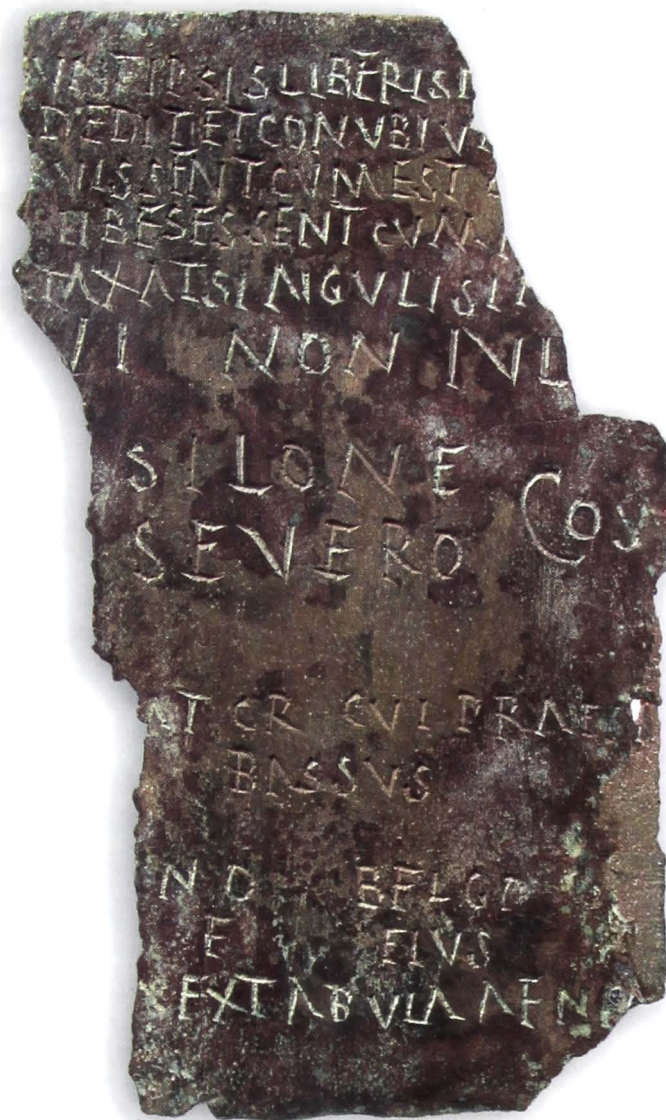 VNT IPSIS LIBERIS
DEDIT ET CONVBIV
VISSENT CVM EST
HBES ESSENT CVM
TAXAT SINGVLIS
VI NON IVL
SILONE
SEVERO COS
AT CR CVI PRAE
BASSVS
BELG
EIVS
EX TABVLA AENEA